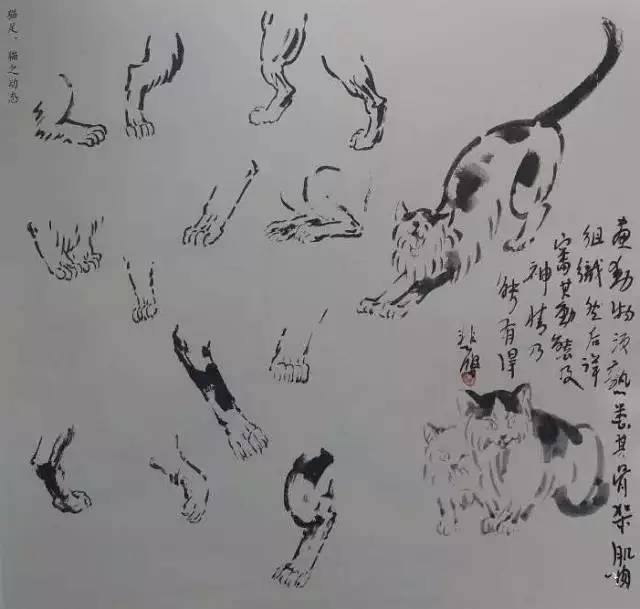 猫足、猫之动态
画動物须熟悉其骨架肌肉
组織然后详
審其動態及
神情乃
能有得